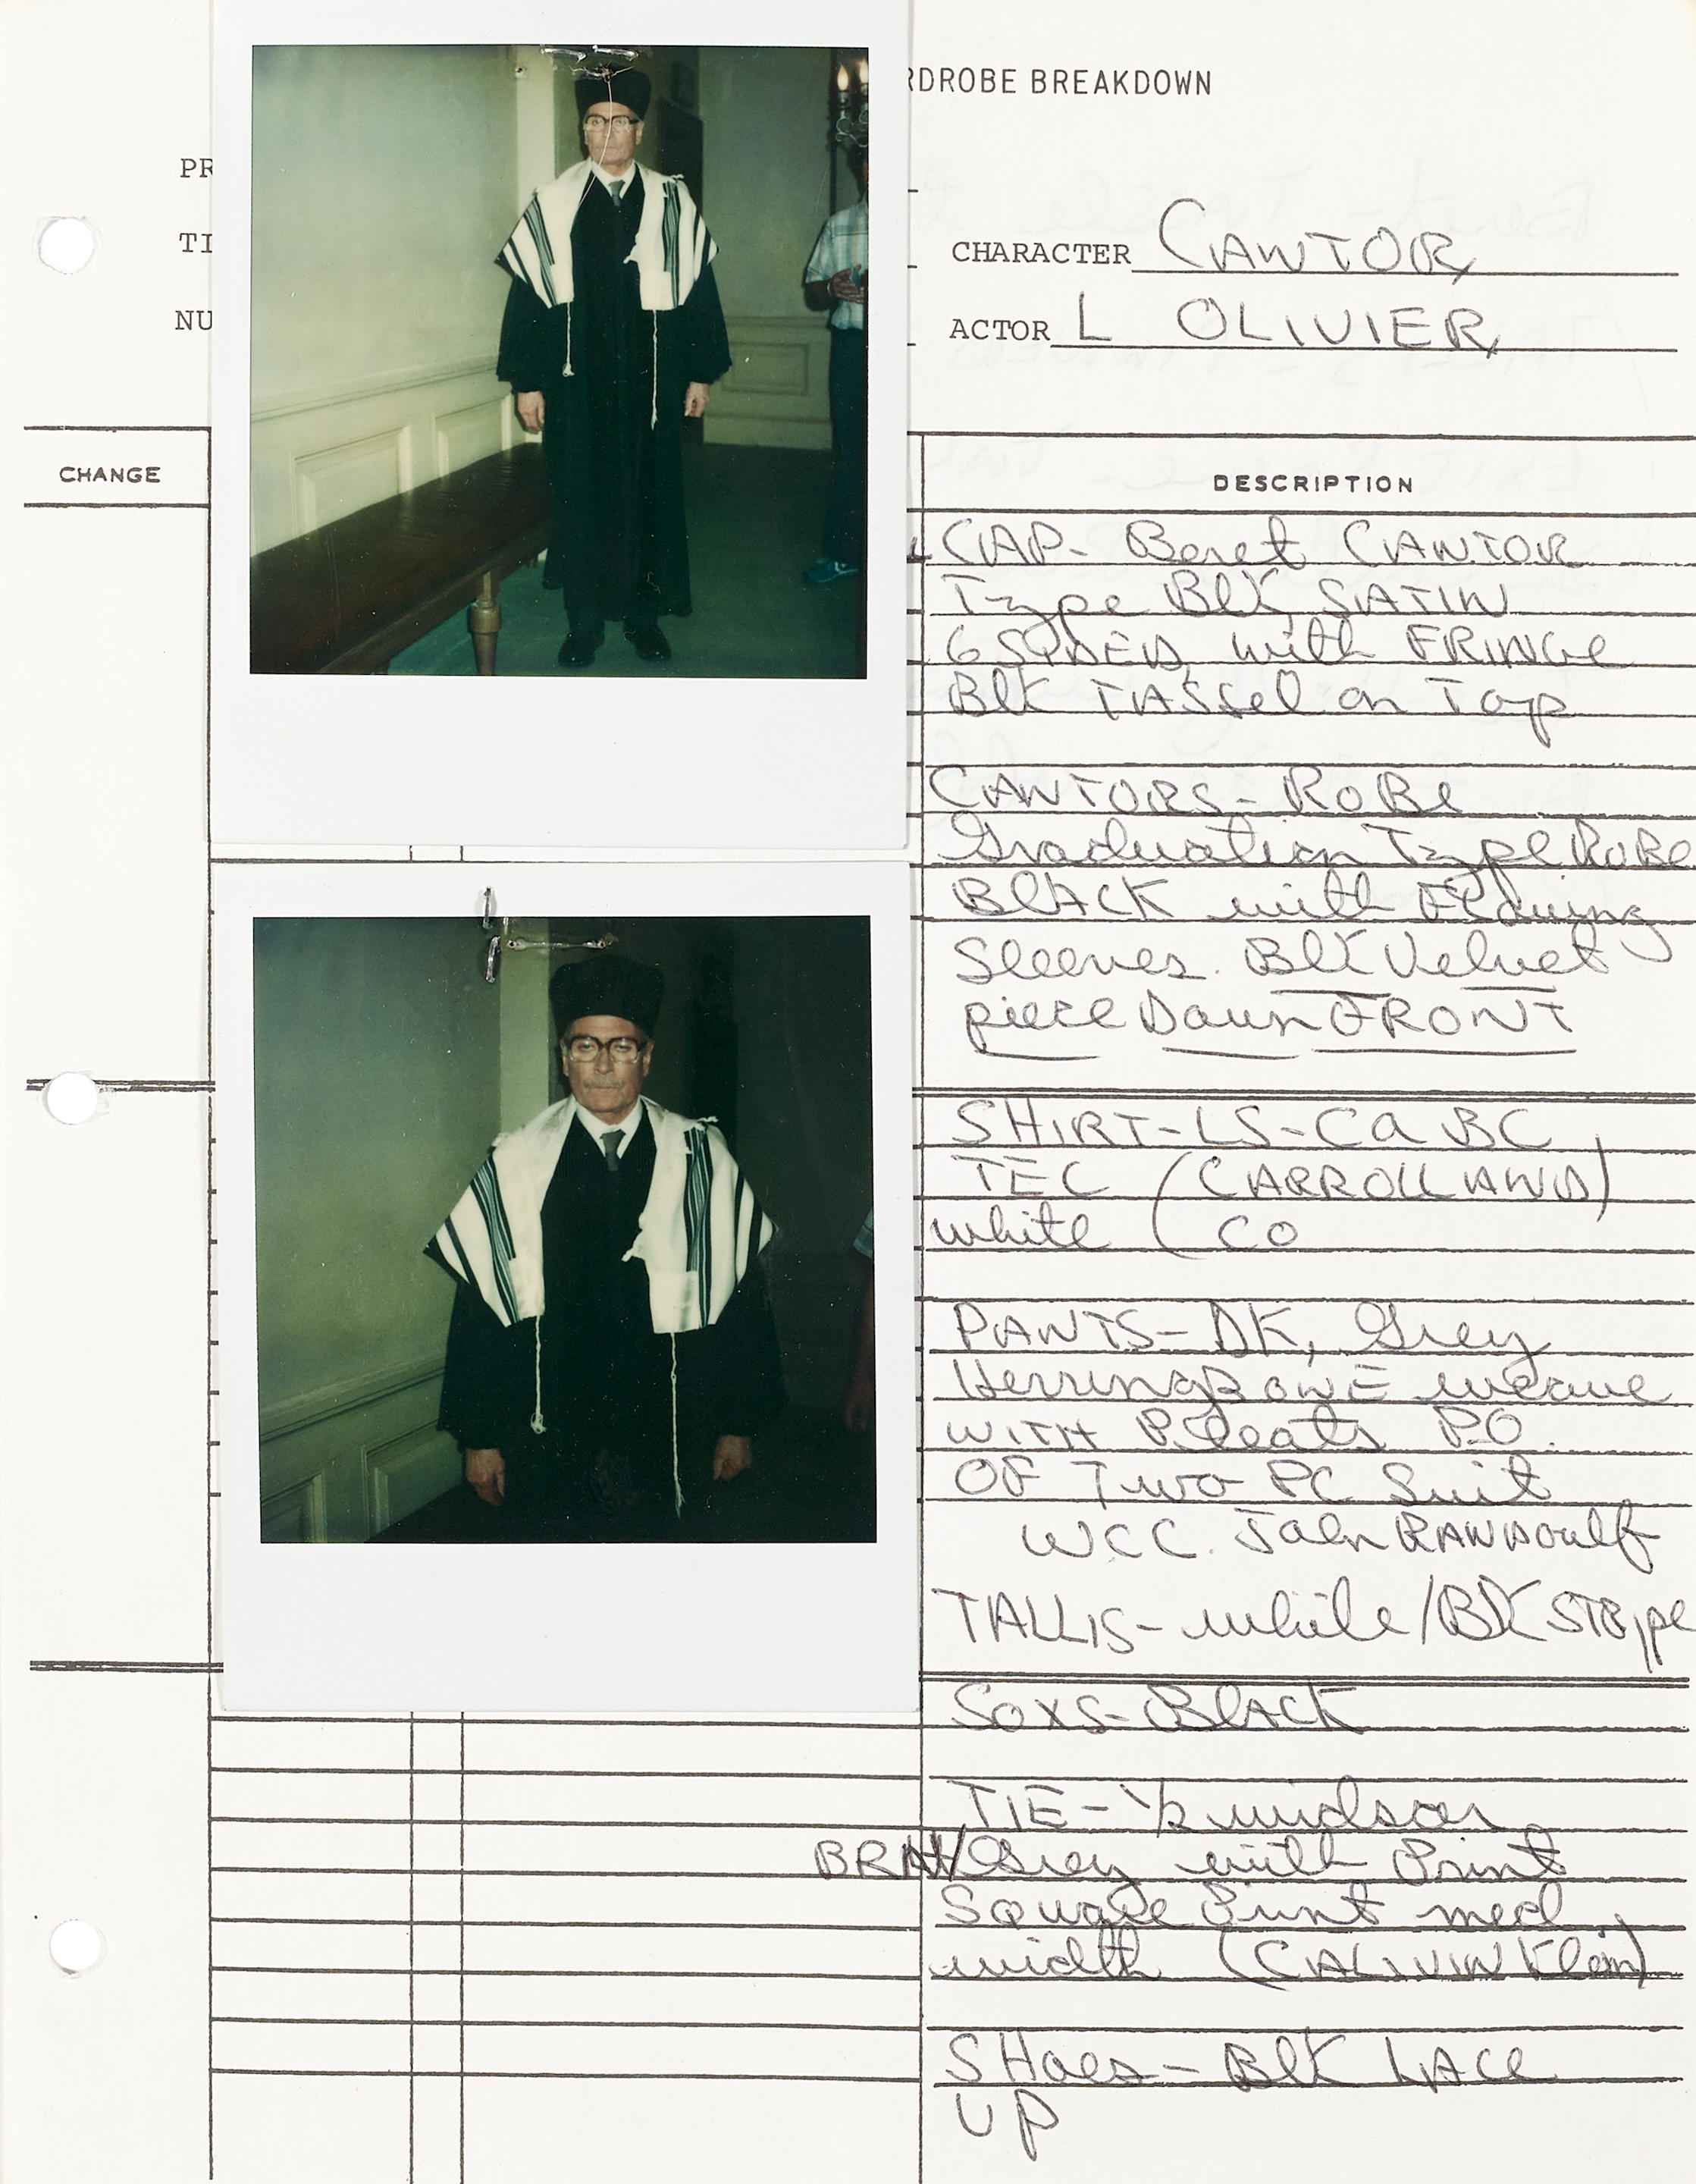 RDROBE BREAKDOWN
PR
TI
NU
CHARACTER CANTOR
ACTOR L OLIVIER
CHANGE
DESCRIPTION
CAP- Beret CANTOR
Type BlK SATIN
6 SIDED with FRINGe
BlK TASSel on Top
CANTORS- RoBe
Graduation Type RoBe
BlACK with Flowing
Sleeves. BlK Velvet
piece Down FRONT
SHIRT-LS-Ca BC
TEC (CARROLL AND)
white ( CO
PANTS- DK, Grey
HerringBONE weave
WITH Pleats PO.
OF Two PC Suit
WCC. John RANDOulf
TALLIS- white/BlK STRipe
SoxS- BlACK
TIE- 1/2 windsor
Grey with Print
Square Print med
width (CALVIN Klein)
SHoes- BlK LACe
UP